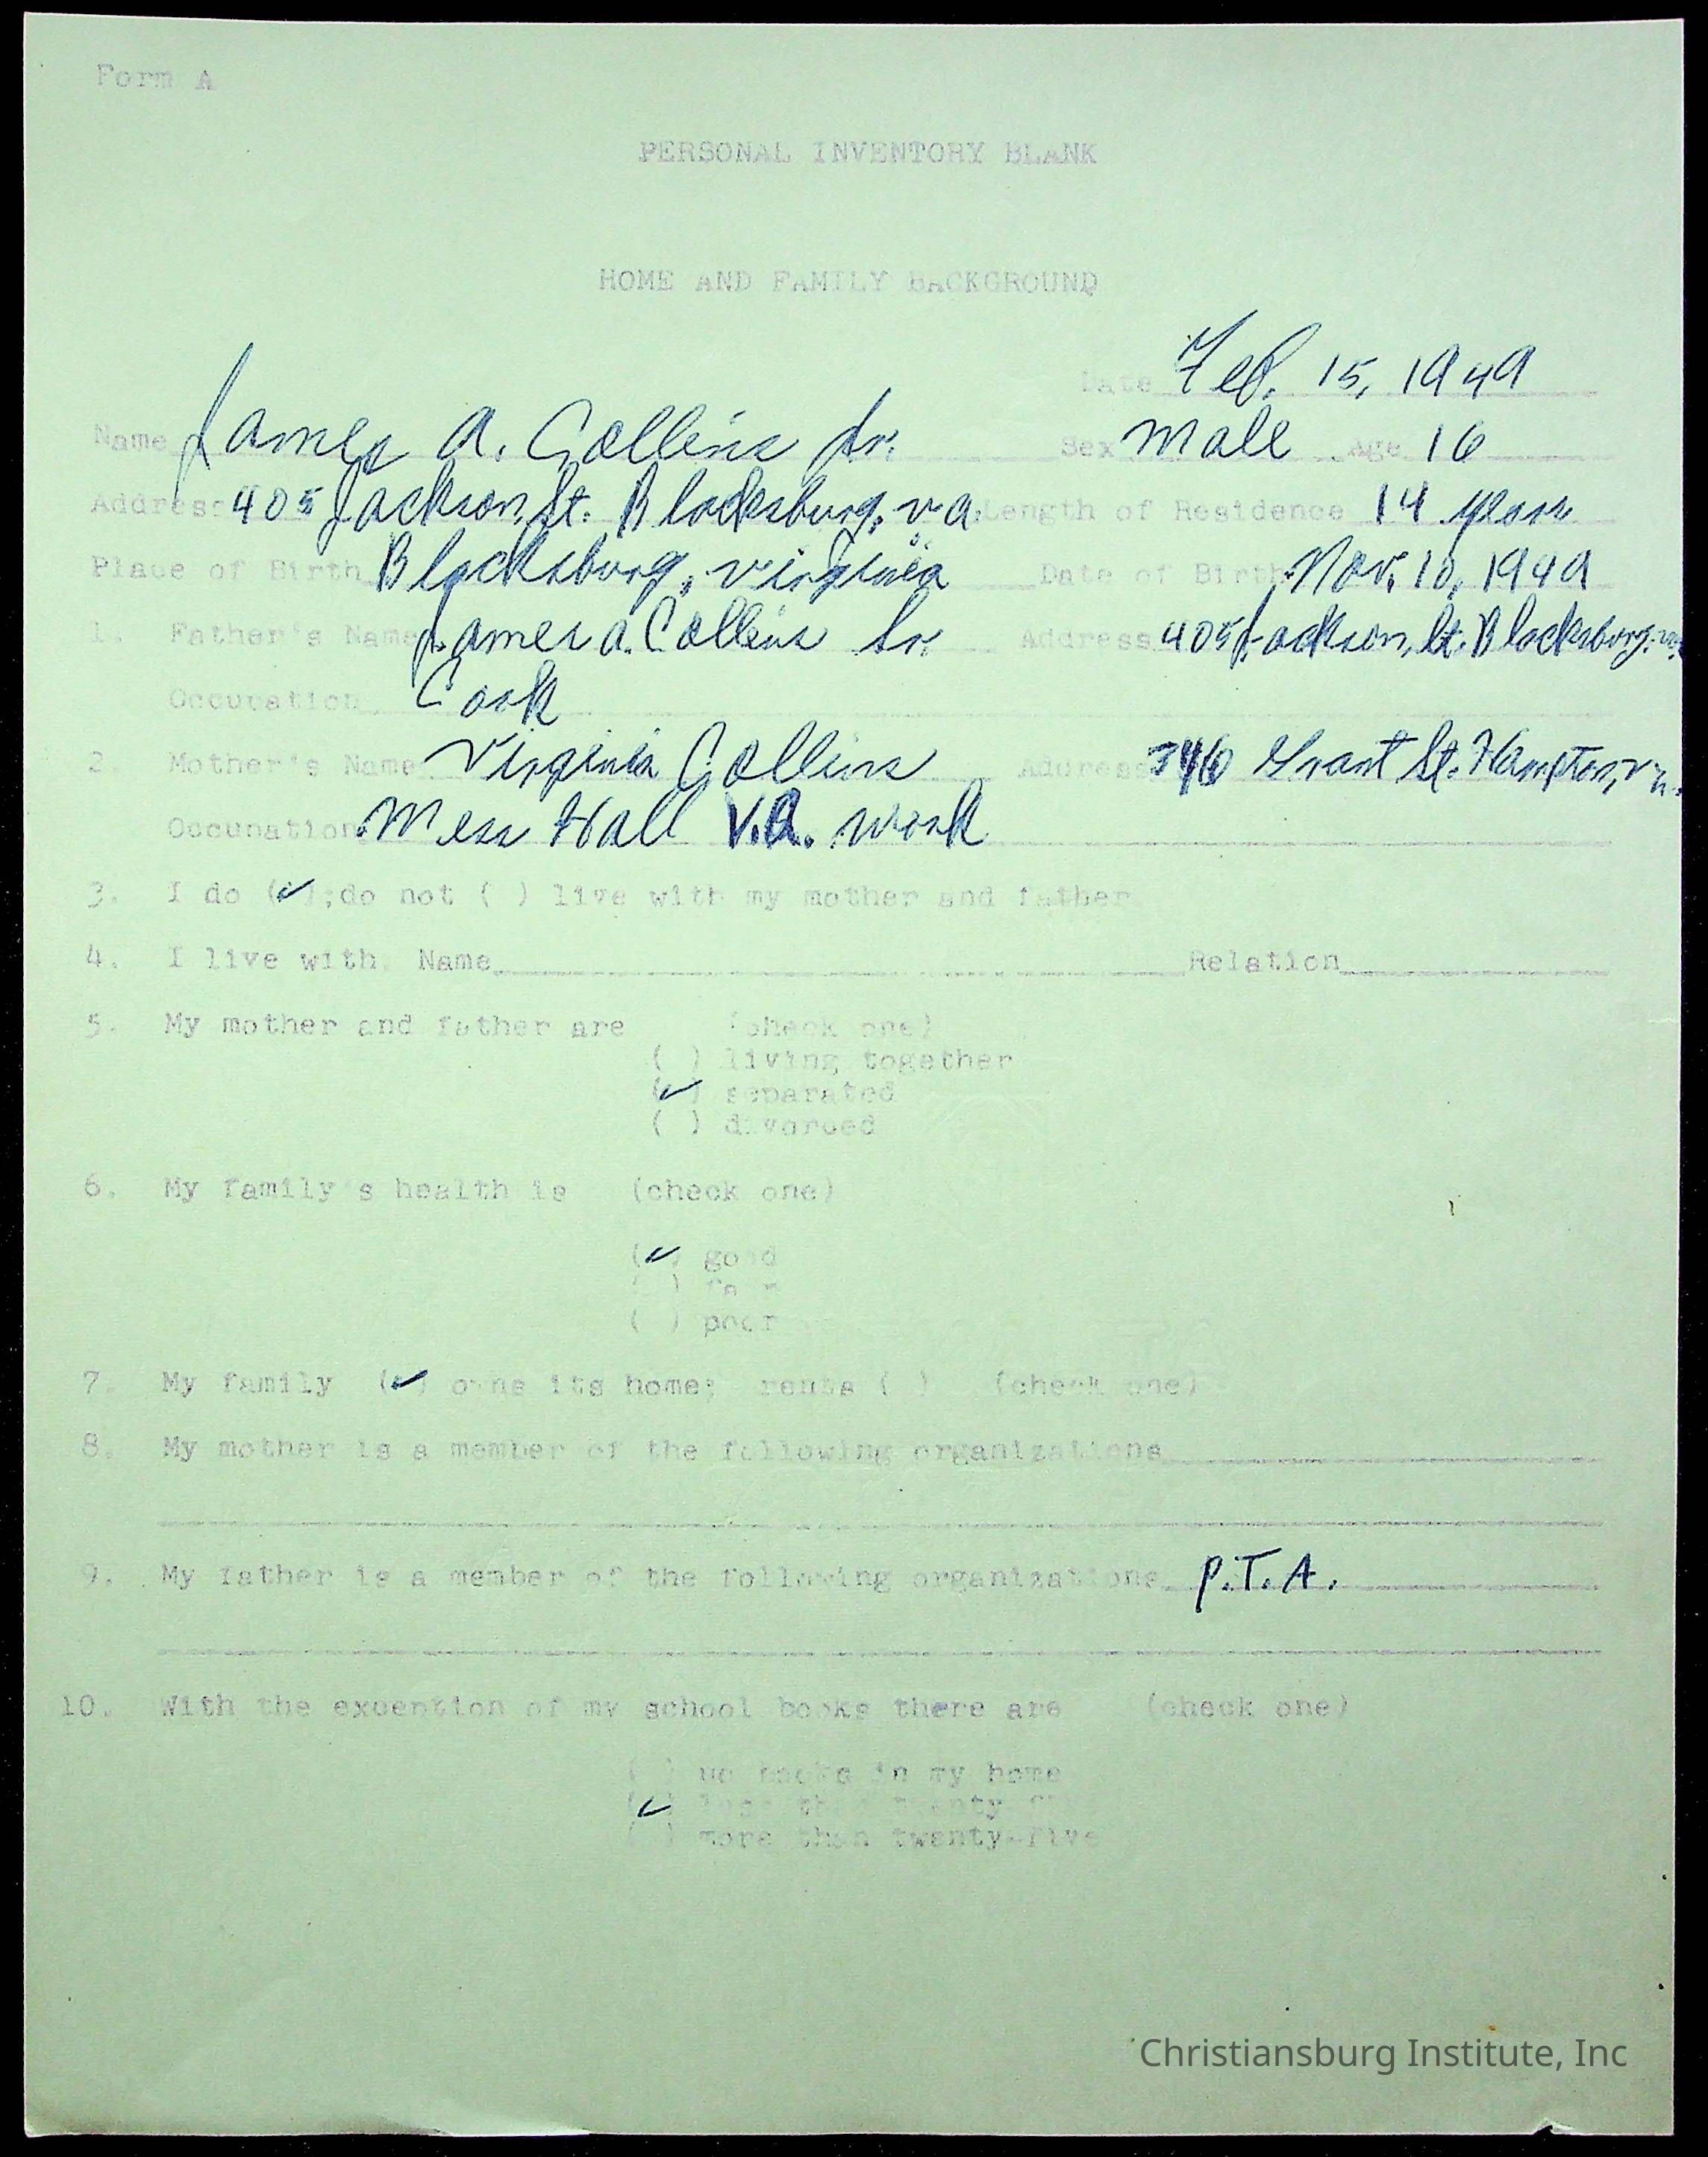 Form A
PERSONAL INVENTORY BLANK
HOME AND FAMILY BACKGROUND
Date Feb. 15, 1949
Name James A. Collins Jr. Sex Male Age 16
Address 405 Jackson, St. Blacksburg, va. Length of Residence 14 years
Place of Birth Blacksburg, Virginia Date of Birth Nov. 10, 1949
1. Father's Name James A. Collins Sr. Address 405 Jackson, St. Blacksburg, va.
Occupation Cook
2. Mother's Name Virginia Collins Address 346 Grant St. Hampton, va.
Occupation Mess Hall V.A. work
3. I do (✓); do not ( ) live with my mother and father
4. I live with Name Relation
5. My mother and father are (check one)
( ) living together
(✓) separated
( ) divorced
6. My family's health is (check one)
(✓) good
( ) fair
( ) poor
7. My family (✓) owns its home; rents ( ) (check one)
8. My mother is a member of the following organizations
9. My father is a member of the following organizations P.T.A.
10. With the exception of my school books there are (check one)
( ) no books in my home
(✓) less than twenty-five
( ) more than twenty-five
Christiansburg Institute, Inc